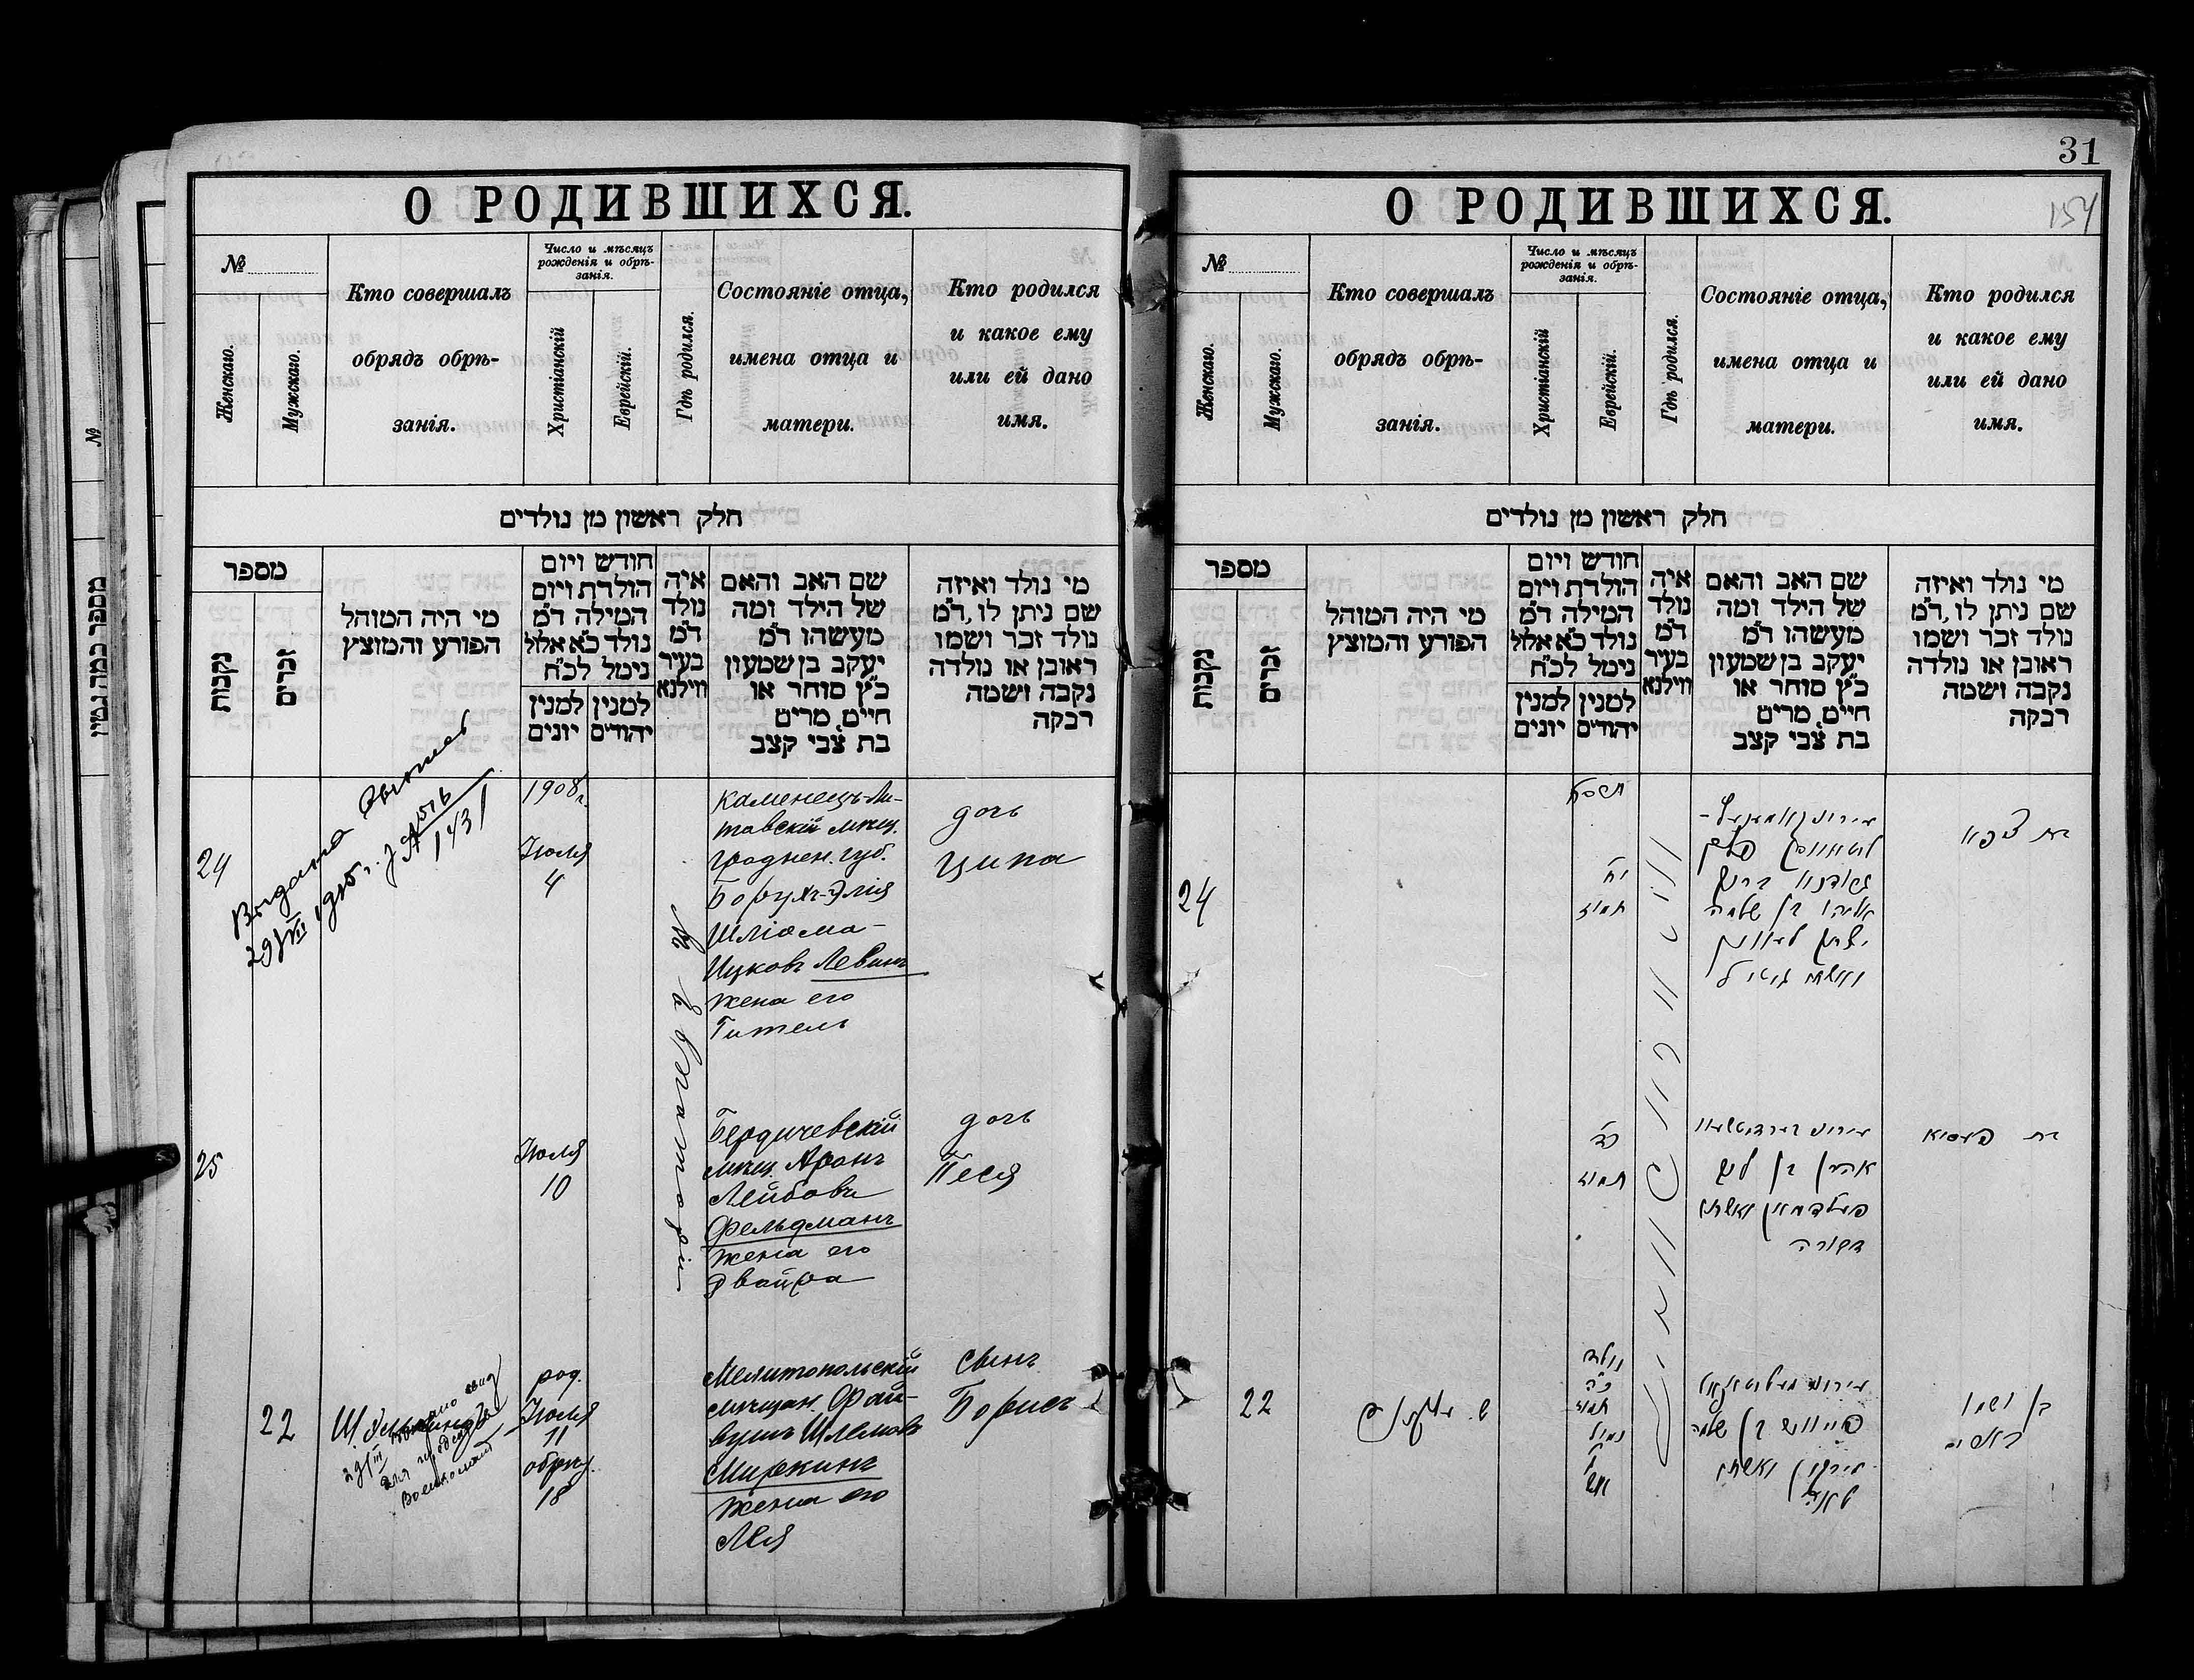 О РОДИВШИХСЯ.
№
Женскаго.
Мужскаго.
Кто совершалъ
обрядъ обрѣ-
занія.
Число и мѣсяцъ
рожденія и обрѣ-
занія.
Христіанскій
Еврейскій.
Гдѣ родился.
Состояніе отца,
имена отца и
матери.
Кто родился
и какое ему
или ей дано
имя.
חלק ראשון מן נולדים
מספר
נקבות
זכרים
מי היה המוהל
הפורע והמוצץ
חודש ויום
הולדת ויום
המילה ד״מ
נולד כ״א אלול
נימל לכ״ח
למנין
יהודים
למנין
יונים
איה
נולד
ד״מ
בעיר
ווילנא
שם האב והאם
של הילד ומה
מעשהו ד״מ
יעקב בן שמעון
כ״ץ סוחר או
חיים, מרים
בת צבי קצב
מי נולד ואיזה
שם ניתן לו, ד״מ
נולד זכר ושמו
ראובן או נולדה
נקבה ושמה
רבקה
24
Выдана
1431
1908 г.
Іюля
4
Каменецъ-Ли-
товскій мѣщ.
Гроднен. губ.
Борухъ-Элія
Шліома-
Ицковъ Левинъ
жена его
Гитель
дочь
Ципа
25
Іюля
10
Бердичевскій
мѣщ. Аронъ
Лейбовъ
Фельдманъ
жена его
Двойра
дочь
Песя
22
род.
Іюля
11
обрѣз.
18
Мелитопольскій
мѣщан. Фай-
вушъ Шлемовъ
Миркинъ
жена его
Лея
сынъ
Борисъ
31
154
О РОДИВШИХСЯ.
№
Женскаго.
Мужскаго.
Кто совершалъ
обрядъ обрѣ-
занія.
Число и мѣсяцъ
рожденія и обрѣ-
занія.
Христіанскій
Еврейскій.
Гдѣ родился.
Состояніе отца,
имена отца и
матери.
Кто родился
и какое ему
или ей дано
имя.
חלק ראשון מן נולדים
מספר
נקבות
זכרים
מי היה המוהל
הפורע והמוצץ
חודש ויום
הולדת ויום
המילה ד״מ
נולד כ״א אלול
נימל לכ״ח
למנין
יהודים
למנין
יונים
איה
נולד
ד״מ
בעיר
ווילנא
שם האב והאם
של הילד ומה
מעשהו ד״מ
יעקב בן שמעון
כ״ץ סוחר או
חיים, מרים
בת צבי קצב
מי נולד ואיזה
שם ניתן לו, ד״מ
נולד זכר ושמו
ראובן או נולדה
נקבה ושמה
רבקה
24
תרס״ח
תמוז
אליהו בן שלמה
בת ציפא
תמוז
אהרן בן ליב
פעלדמאן ואשתו
דבורה
בת פעסיא
22
נולד
כ״ה
תמוז
נמול
פייוויש בן שלמה
מירקין ואשתו
לאה
בן ושמו